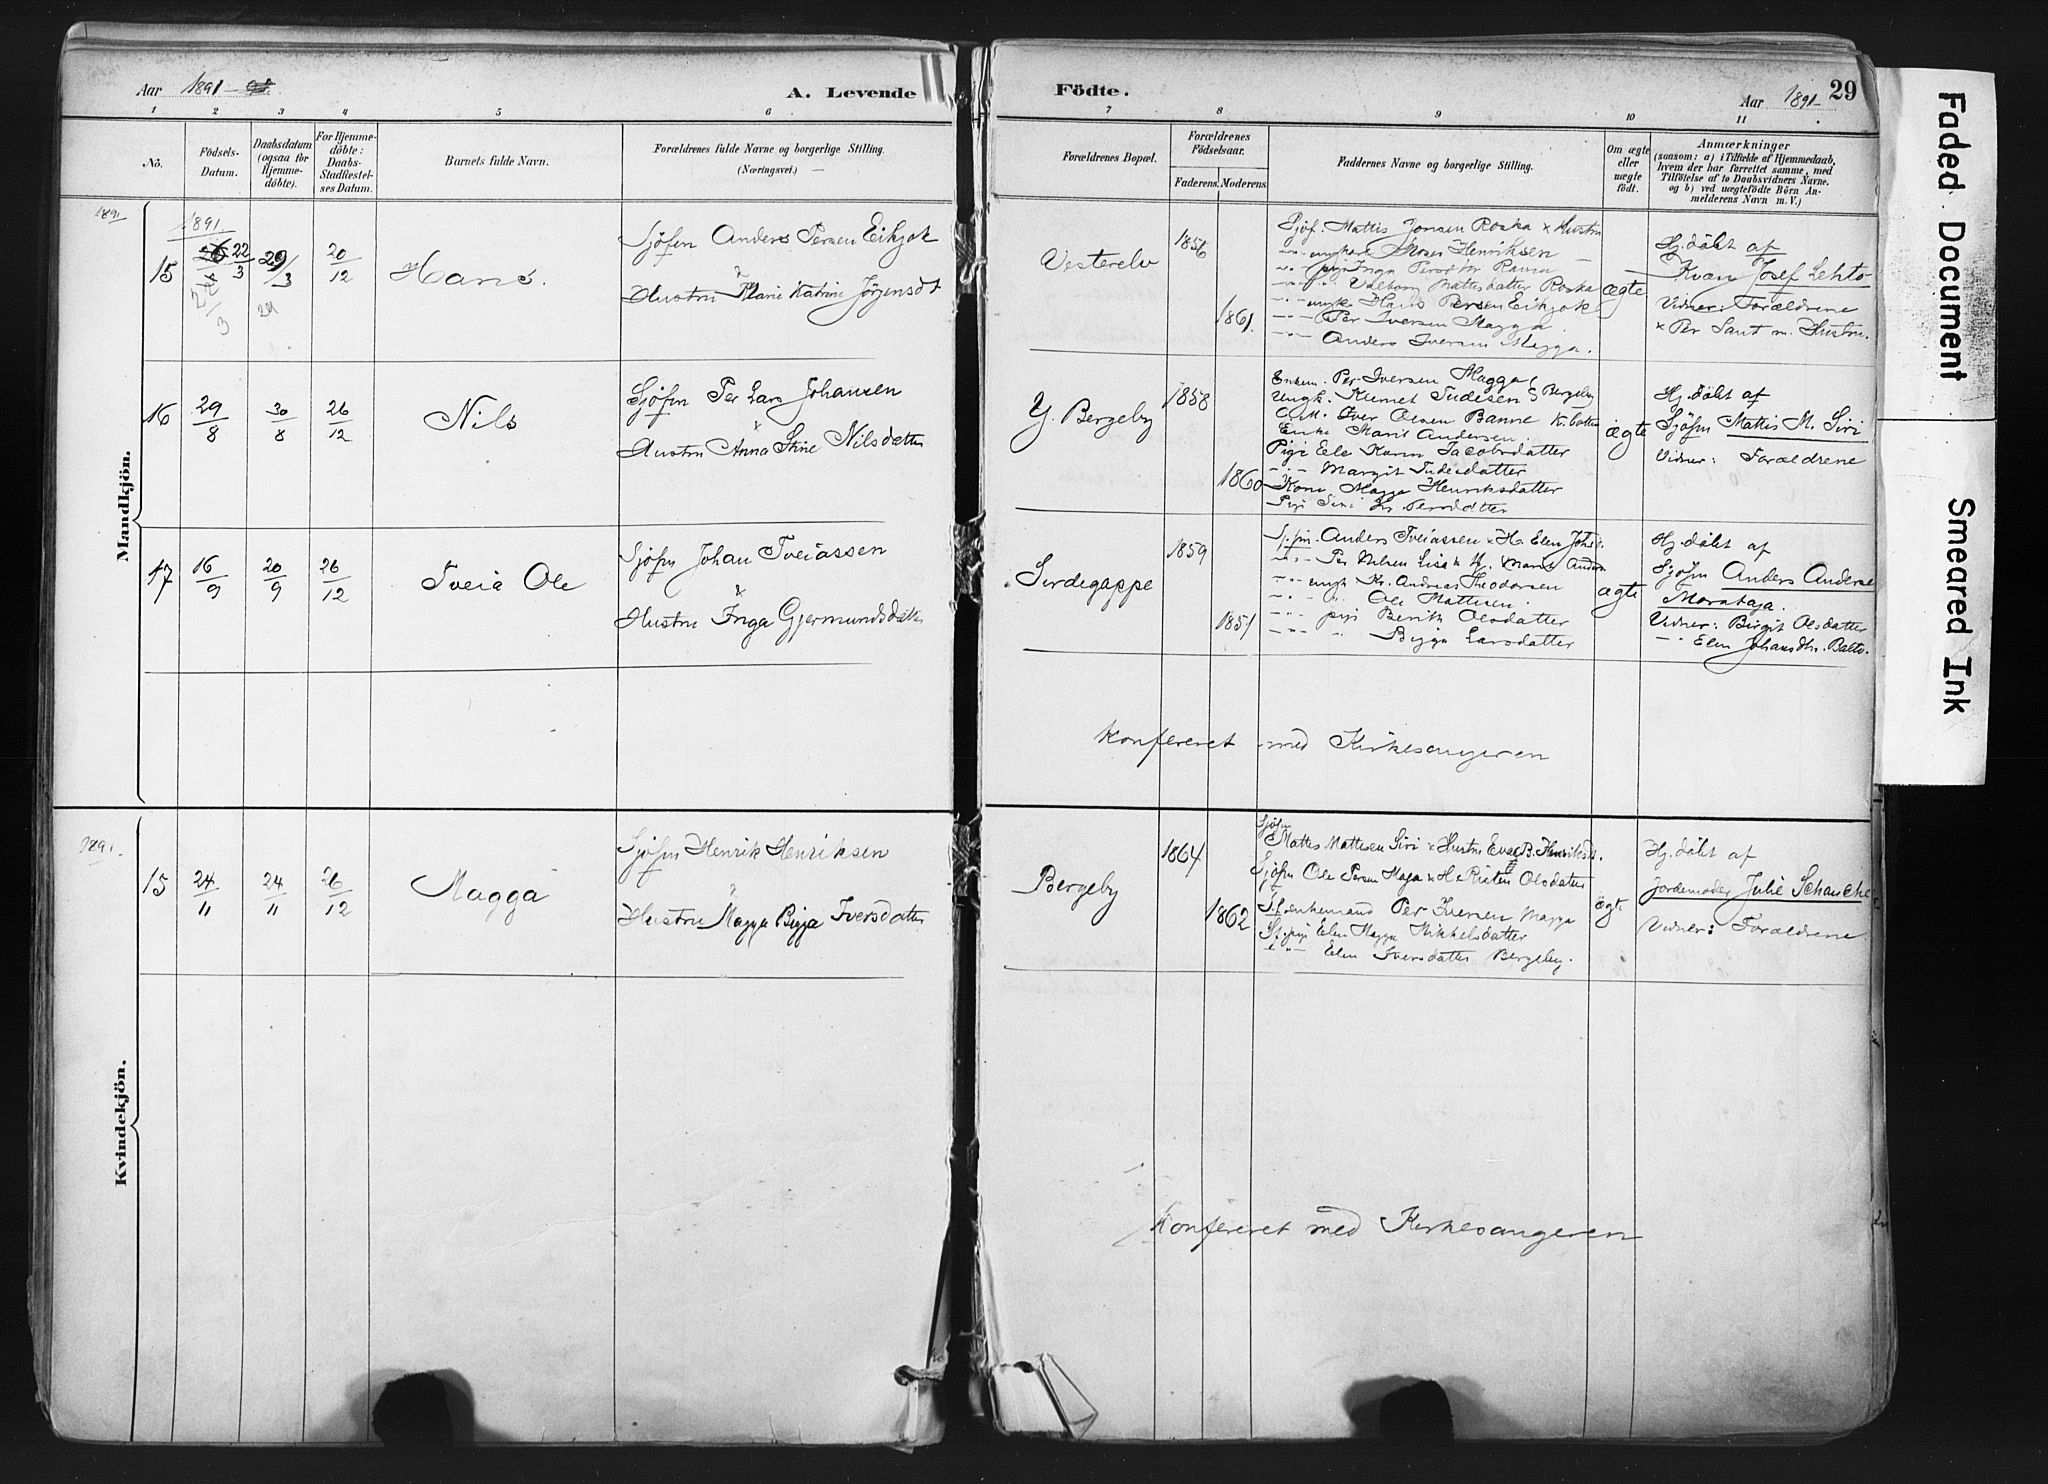 Aar 1891
A. Levende
Födte.
Aar 1891
29
1 2 3 4 5 6 7 8 9 10 11
Nô.
Födsels-
Datum.
Daabsdatum
(ogsaa for
Hjemme-
döbte).
For Hjemme-
döbte:
Daabs-
Stadfæstel-
ses Datum.
Barnets fulde Navn.
Forældrenes fulde Navne og borgerlige Stilling.
(Næringsvei.)
Forældrenes Bopæl.
Forældrenes
Födselsaar.
Faderens.
Moderens.
Faddernes Navne og borgerlige Stilling.
Om ægte
eller
uægte
födt.
Anmærkninger
(saasom: a) i Tilfælde af Hjemmedaab,
hvem der har forrettet samme, med
Tilföielse af to Daabsvidners Navne.
og b) ved uægtefödte Börn An-
melderens Navn m. V.)
Mandkjön.
1891
1891.
15
22/3
29/3
20/12
Hans.
Sjöfin Anders Persen Eikjok
&
Hustru Marie Katrine Jörgensdt
Vesterelv
1856
1861.
Sjöf. Mattis Jonsen Roska x Hustru
ungkarl Moses Henriksen
pige Inga Persdtr Ravna
Valborg Mattisdatter Roska
ungk. Hans Persen Eikjok
Per Iversen Magga
Anders Iversen Magga.
ægte
Hj. döbt af
Kvæn Josef Lehto
Vidner: Forældrene
x Per Sant m. Hustru.
16
29/8
30/8
26/12
Nils
Sjöfin Per Lars Johansen
x
Hustru Anna Stine Nilsdatter
Y. Bergeby
1858
1860
Enkem. Per Iversen Magga, Bergeby
Ungk. Kunet Tudesen
G.M. Iver Olsen Banne
Enke Marit Andersen.
Pige Ele Karin Jacobsdatter
Margit Tudesdatter
Kone Magga Henriksdatter
Pige Siri Persdatter
ægte
Hj. döbt af
Sjöfin Mattis M. Siri
Vidner: Forældrene
17
16/9
20/9
26/12
Tveia Ole
Sjöfin Johan Tveiassen
&
Hustru Inga Gjermundsdatter
Sirdegappe
1859
1851
Sjfin. Anders Tveiassen x H. Elen Johs.
Per Nilsen Lisa x H. Marit Anders
ungk Kr. Andreas Theodorsen
Ole Mattisen.
pige Berith Olsdatter
Bigga Larsdatter
ægte
Hj. döbt af
Sjöfin Anders Anderse
Morataja.
Vidner: Birgit Olsdatter
Elen Johansdtr. Balto.
Konfereret med Kirkesangeren
Kvindekjön.
1891.
15
24/11
24/11
26/12
Magga
Sjöfin Henrik Henriksen
&
Hustru Magga Bigga Iversdatter
Bergeby
1864
1862
Sjöfin
Mattis Mattisen Siri x Hustru Eva B. Henriksdt.
Sjöfin Ole Persen Maja x H. Risten Olsdatter
Sj. enkemand Per Iversen Magga
Sj. pige Elen Magga Mikkelsdatter
Elen Iversdatter Bergeby.
ægte
Hj. döbt af
Jordemoder Julie Schancke
Vidner: Forældrene.
Konfereret med Kirkesangeren
Faded Document
Smeared Ink